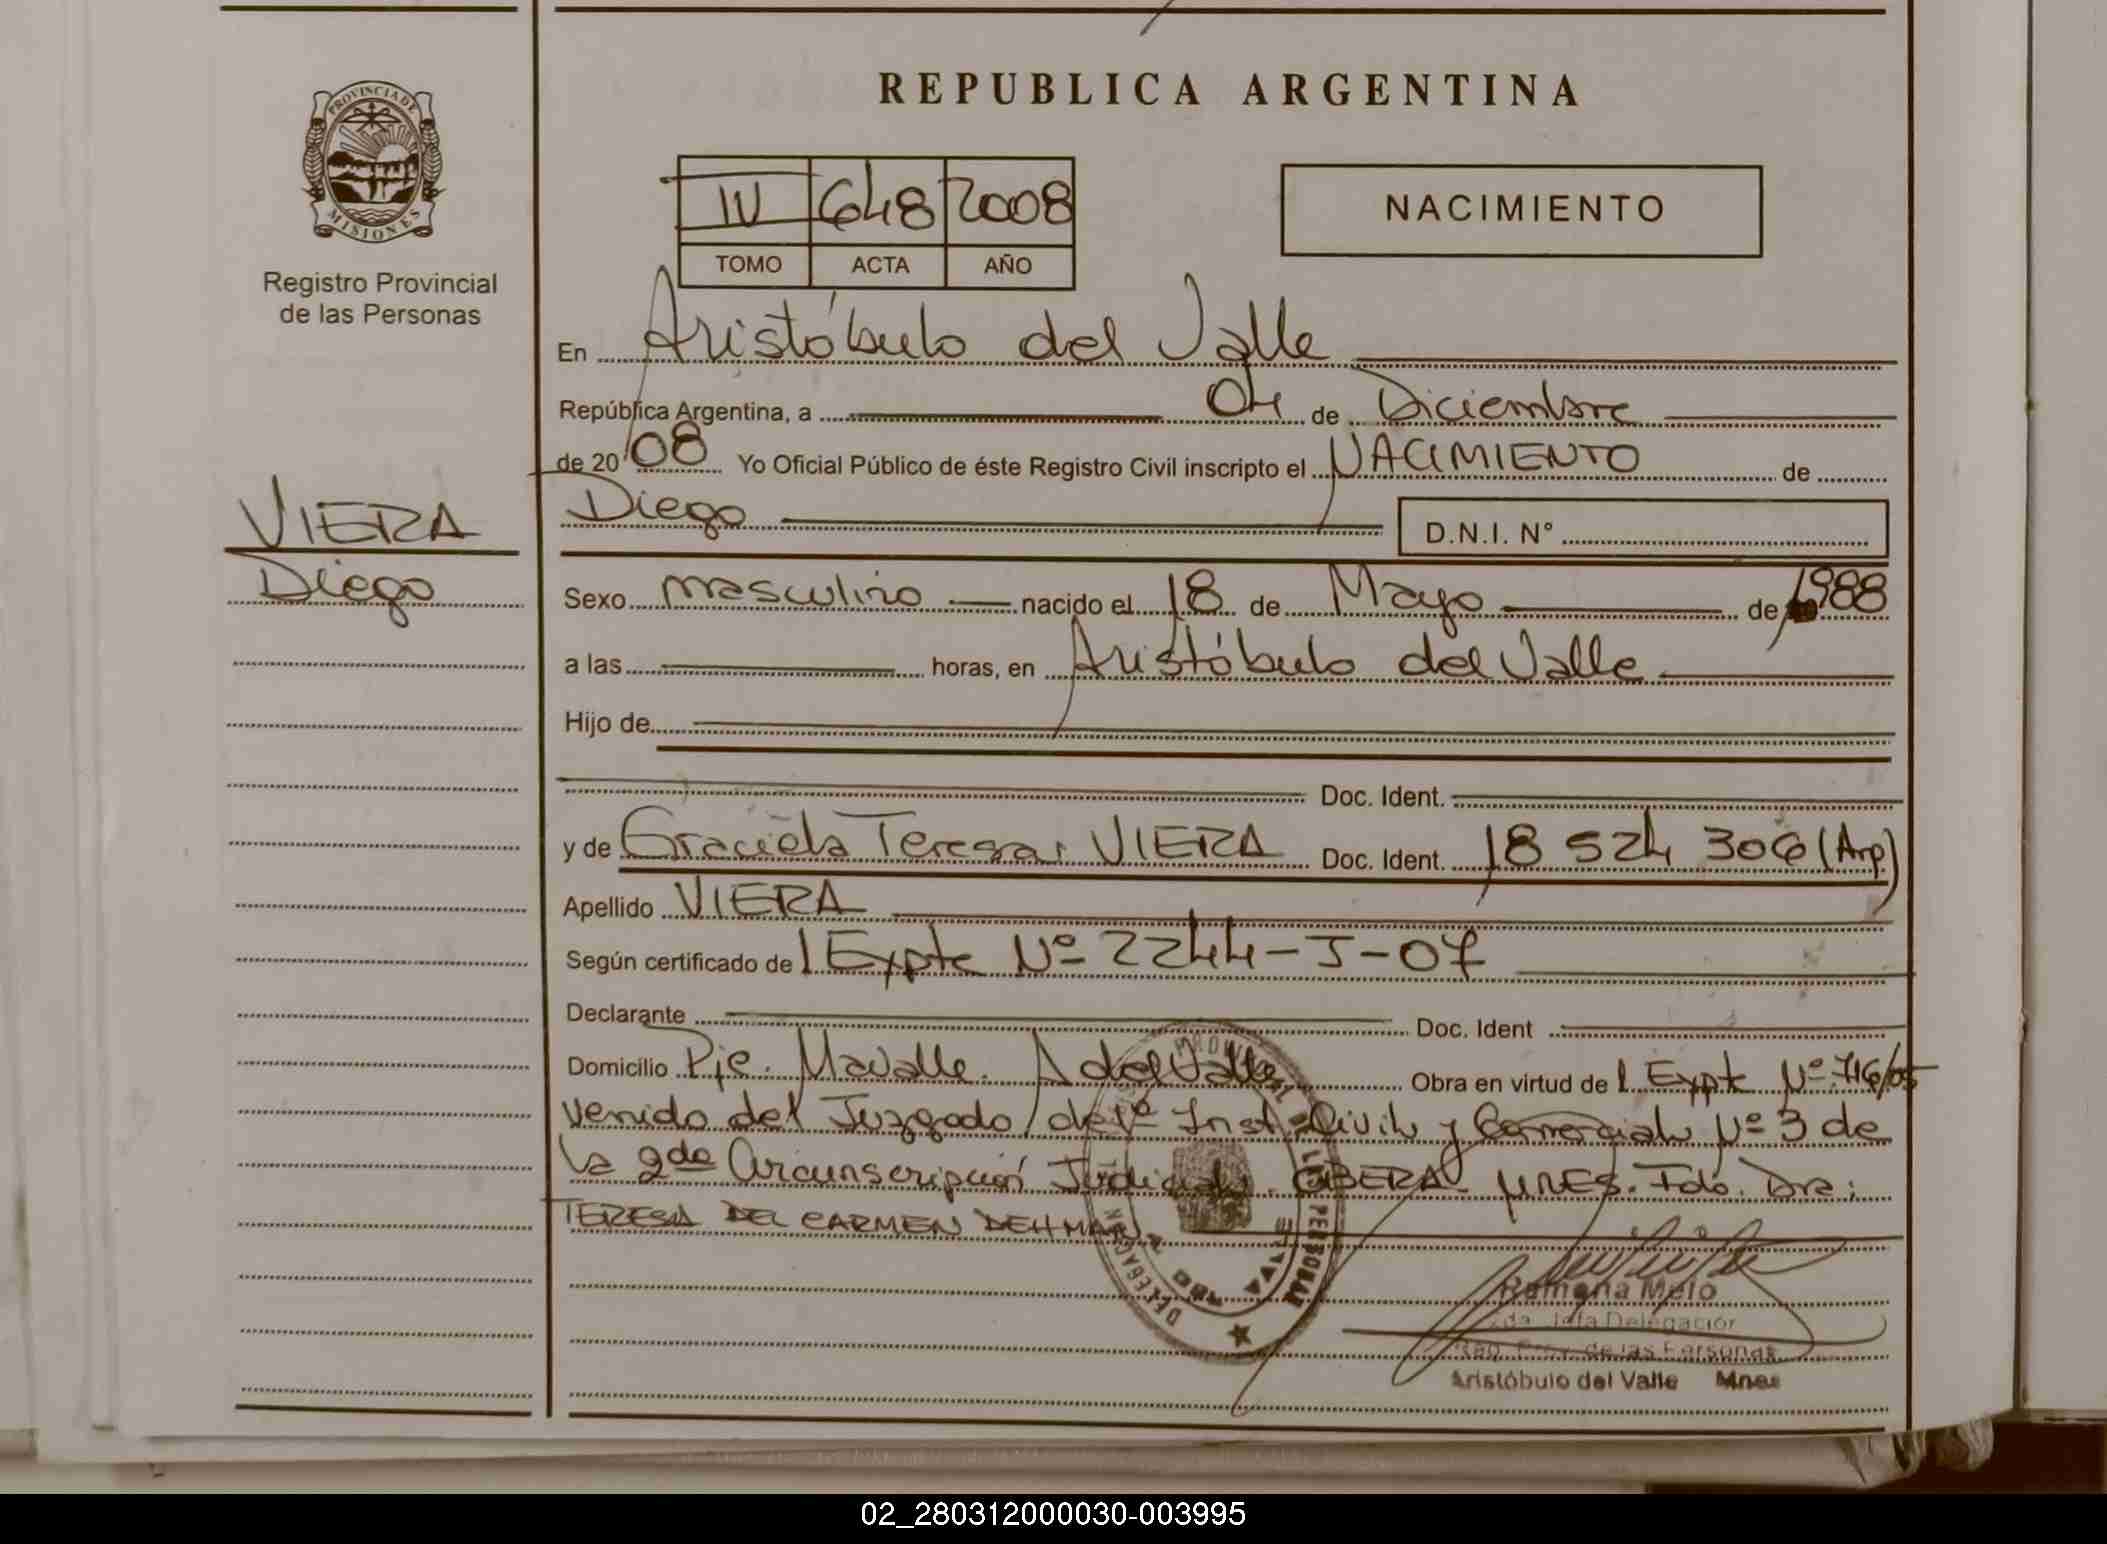 REPUBLICA ARGENTINA
PROVINCIA DE
MISIONES
Registro Provincial
de las Personas
IV 648 2008
TOMO ACTA AÑO
NACIMIENTO
En Aristóbulo del Valle
República Argentina, a 04 de Diciembre
de 2008 Yo Oficial Público de éste Registro Civil inscripto el NACIMIENTO de
VIERA
Diego
Diego D.N.I. N°
Sexo masculino nacido el 18 de Mayo de 1988
a las horas, en Aristóbulo del Valle
Hijo de
Doc. Ident.
y de Graciela Teresa VIERA Doc. Ident. 18 524 306 (Arg)
Apellido VIERA
Según certificado de Expte Nº 2244-J-07
Declarante Doc. Ident
Domicilio Pje. Mavalle. A del Valle Obra en virtud de Expte Nº 716/05
venido del Juzgado de 1º Inst. Civil y Comercial Nº 3 de
la 2da Circunscripción Judicial OBERA MNES. Fdo. Dra:
TERESA DEL CARMEN DEHMAN
Ramona Melo
2da Jefa Delegación
Reg. Prov. de las Personas
Aristóbulo del Valle Mnes
02_280312000030-003995